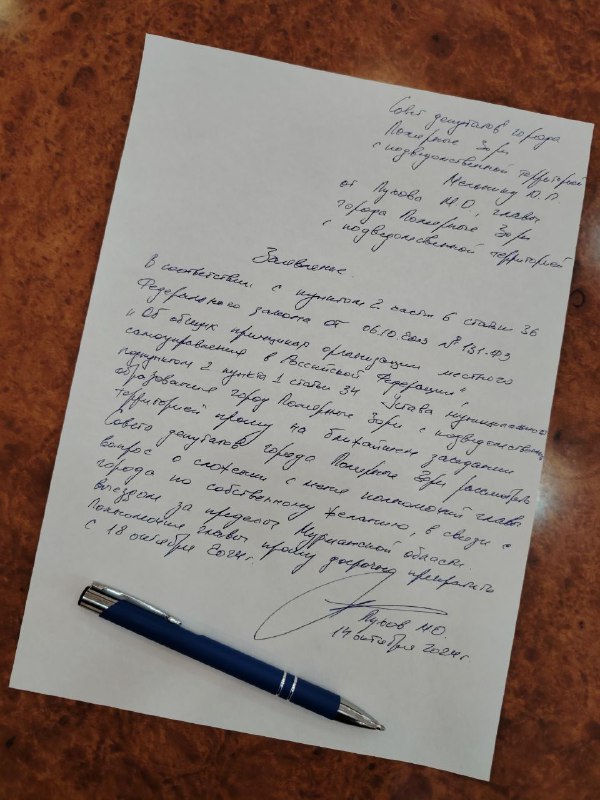 Совет депутатов города
Полярные Зори
с подведомственной территорией
Мельнику Ю.П.
от Пухова М.О., главы
города Полярные Зори
с подведомственной территорией
Заявление.
В соответствии с пунктом 2 части 6 статьи 36
Федерального закона от 06.10.2003 № 131-ФЗ
"Об общих принципах организации местного
самоуправления в Российской Федерации",
подпунктом 2 пункта 1 статьи 34 Устава муниципального
образования город Полярные Зори с подведомственной
территорией прошу на ближайшем заседании
Совета депутатов города Полярные Зори рассмотреть
вопрос о сложении с меня полномочий главы
города по собственному желанию, в связи с
выездом за пределы Мурманской области.
Полномочия главы прошу досрочно прекратить
с 18 октября 2024г.
Пухов М.О.
14 октября 2024г.